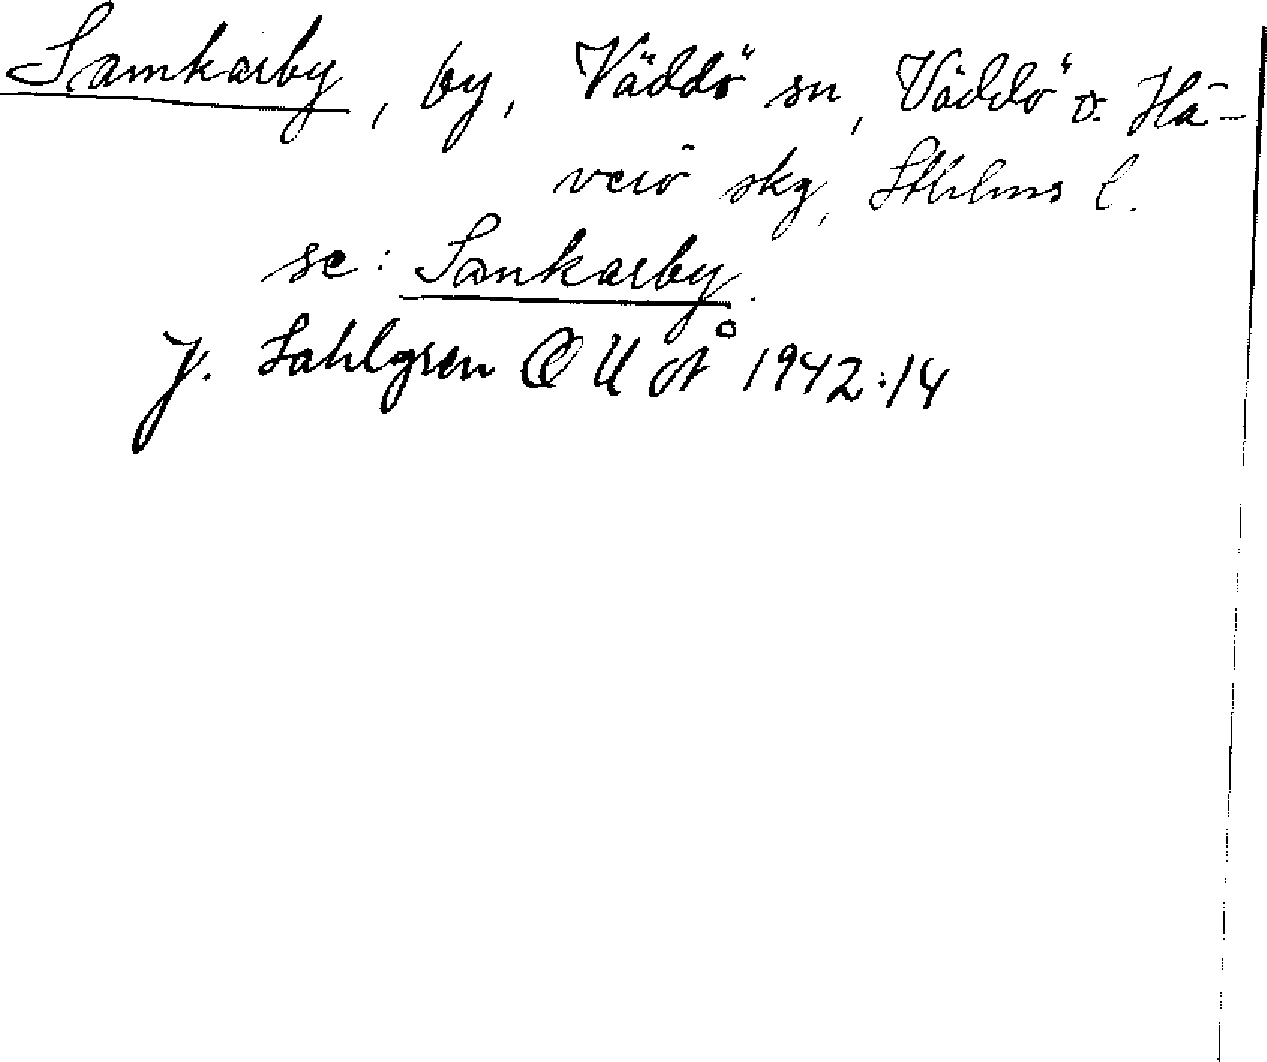 Samkarby, by, Väddö sn, Väddö o. Hä-
verö skg, Sthlms l.
se: Sankarby.
J. Sahlgren OUÅ 1942:14